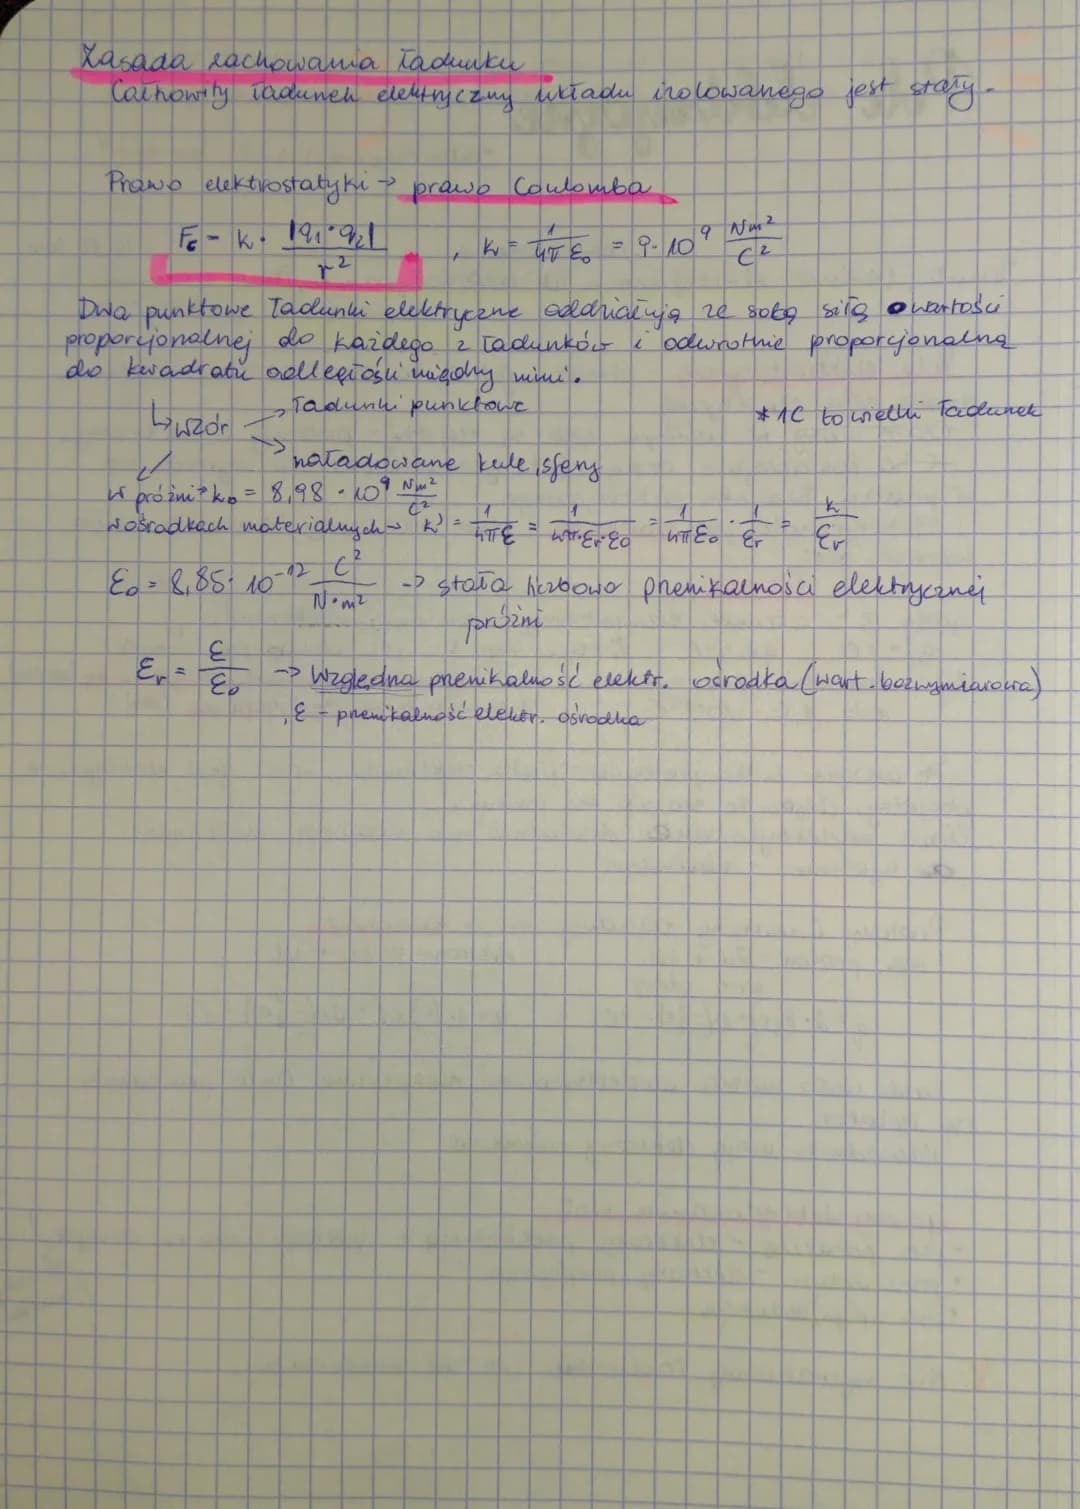 Zasada zachowania ładunku
Całkowity ładunek elektryczny układu izolowanego jest stały.
Prawo elektrostatyki → prawo Coulomba
Fc = k · |q1 · q2| / r² , k = 1 / 4πε₀ = 9 · 10⁹ Nm² / C²
Dwa punktowe ładunki elektryczne oddziałują ze sobą siłą o wartości
proporcjonalnej do każdego z ładunków i odwrotnie proporcjonalną
do kwadratu odległości między nimi.
↳ wzór → ładunki punktowe
* 1C to wielki ładunek
→ naładowane kule, sfery
w próżni → k₀ = 8,98 · 10⁹ Nm² / C²
w ośrodkach materialnych → k' = 1 / 4πε = 1 / 4π·εr·ε₀ = 1 / 4πε₀ · 1 / εr = k / εr
ε₀ = 8,85 · 10⁻¹² C² / N·m² → stała liczbowo przenikalności elektrycznej
próżni
εr = ε / ε₀ → Względna przenikalność elektr. ośrodka (wart. bezwymiarowa)
, ε - przenikalność elektr. ośrodka